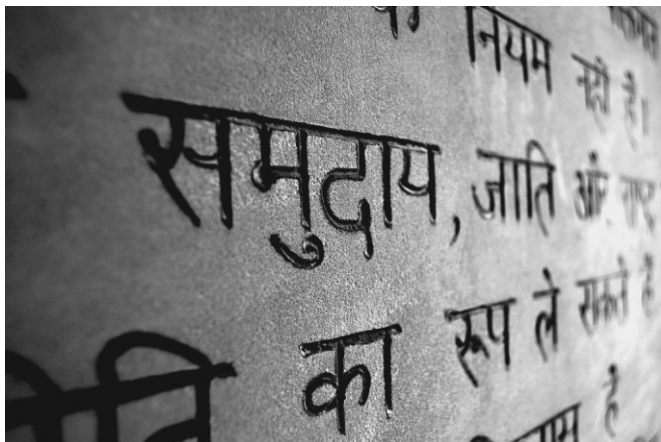 नियम नही है।
समुदाय, जाति और राष्ट्र
का रूप ले सकते है
है